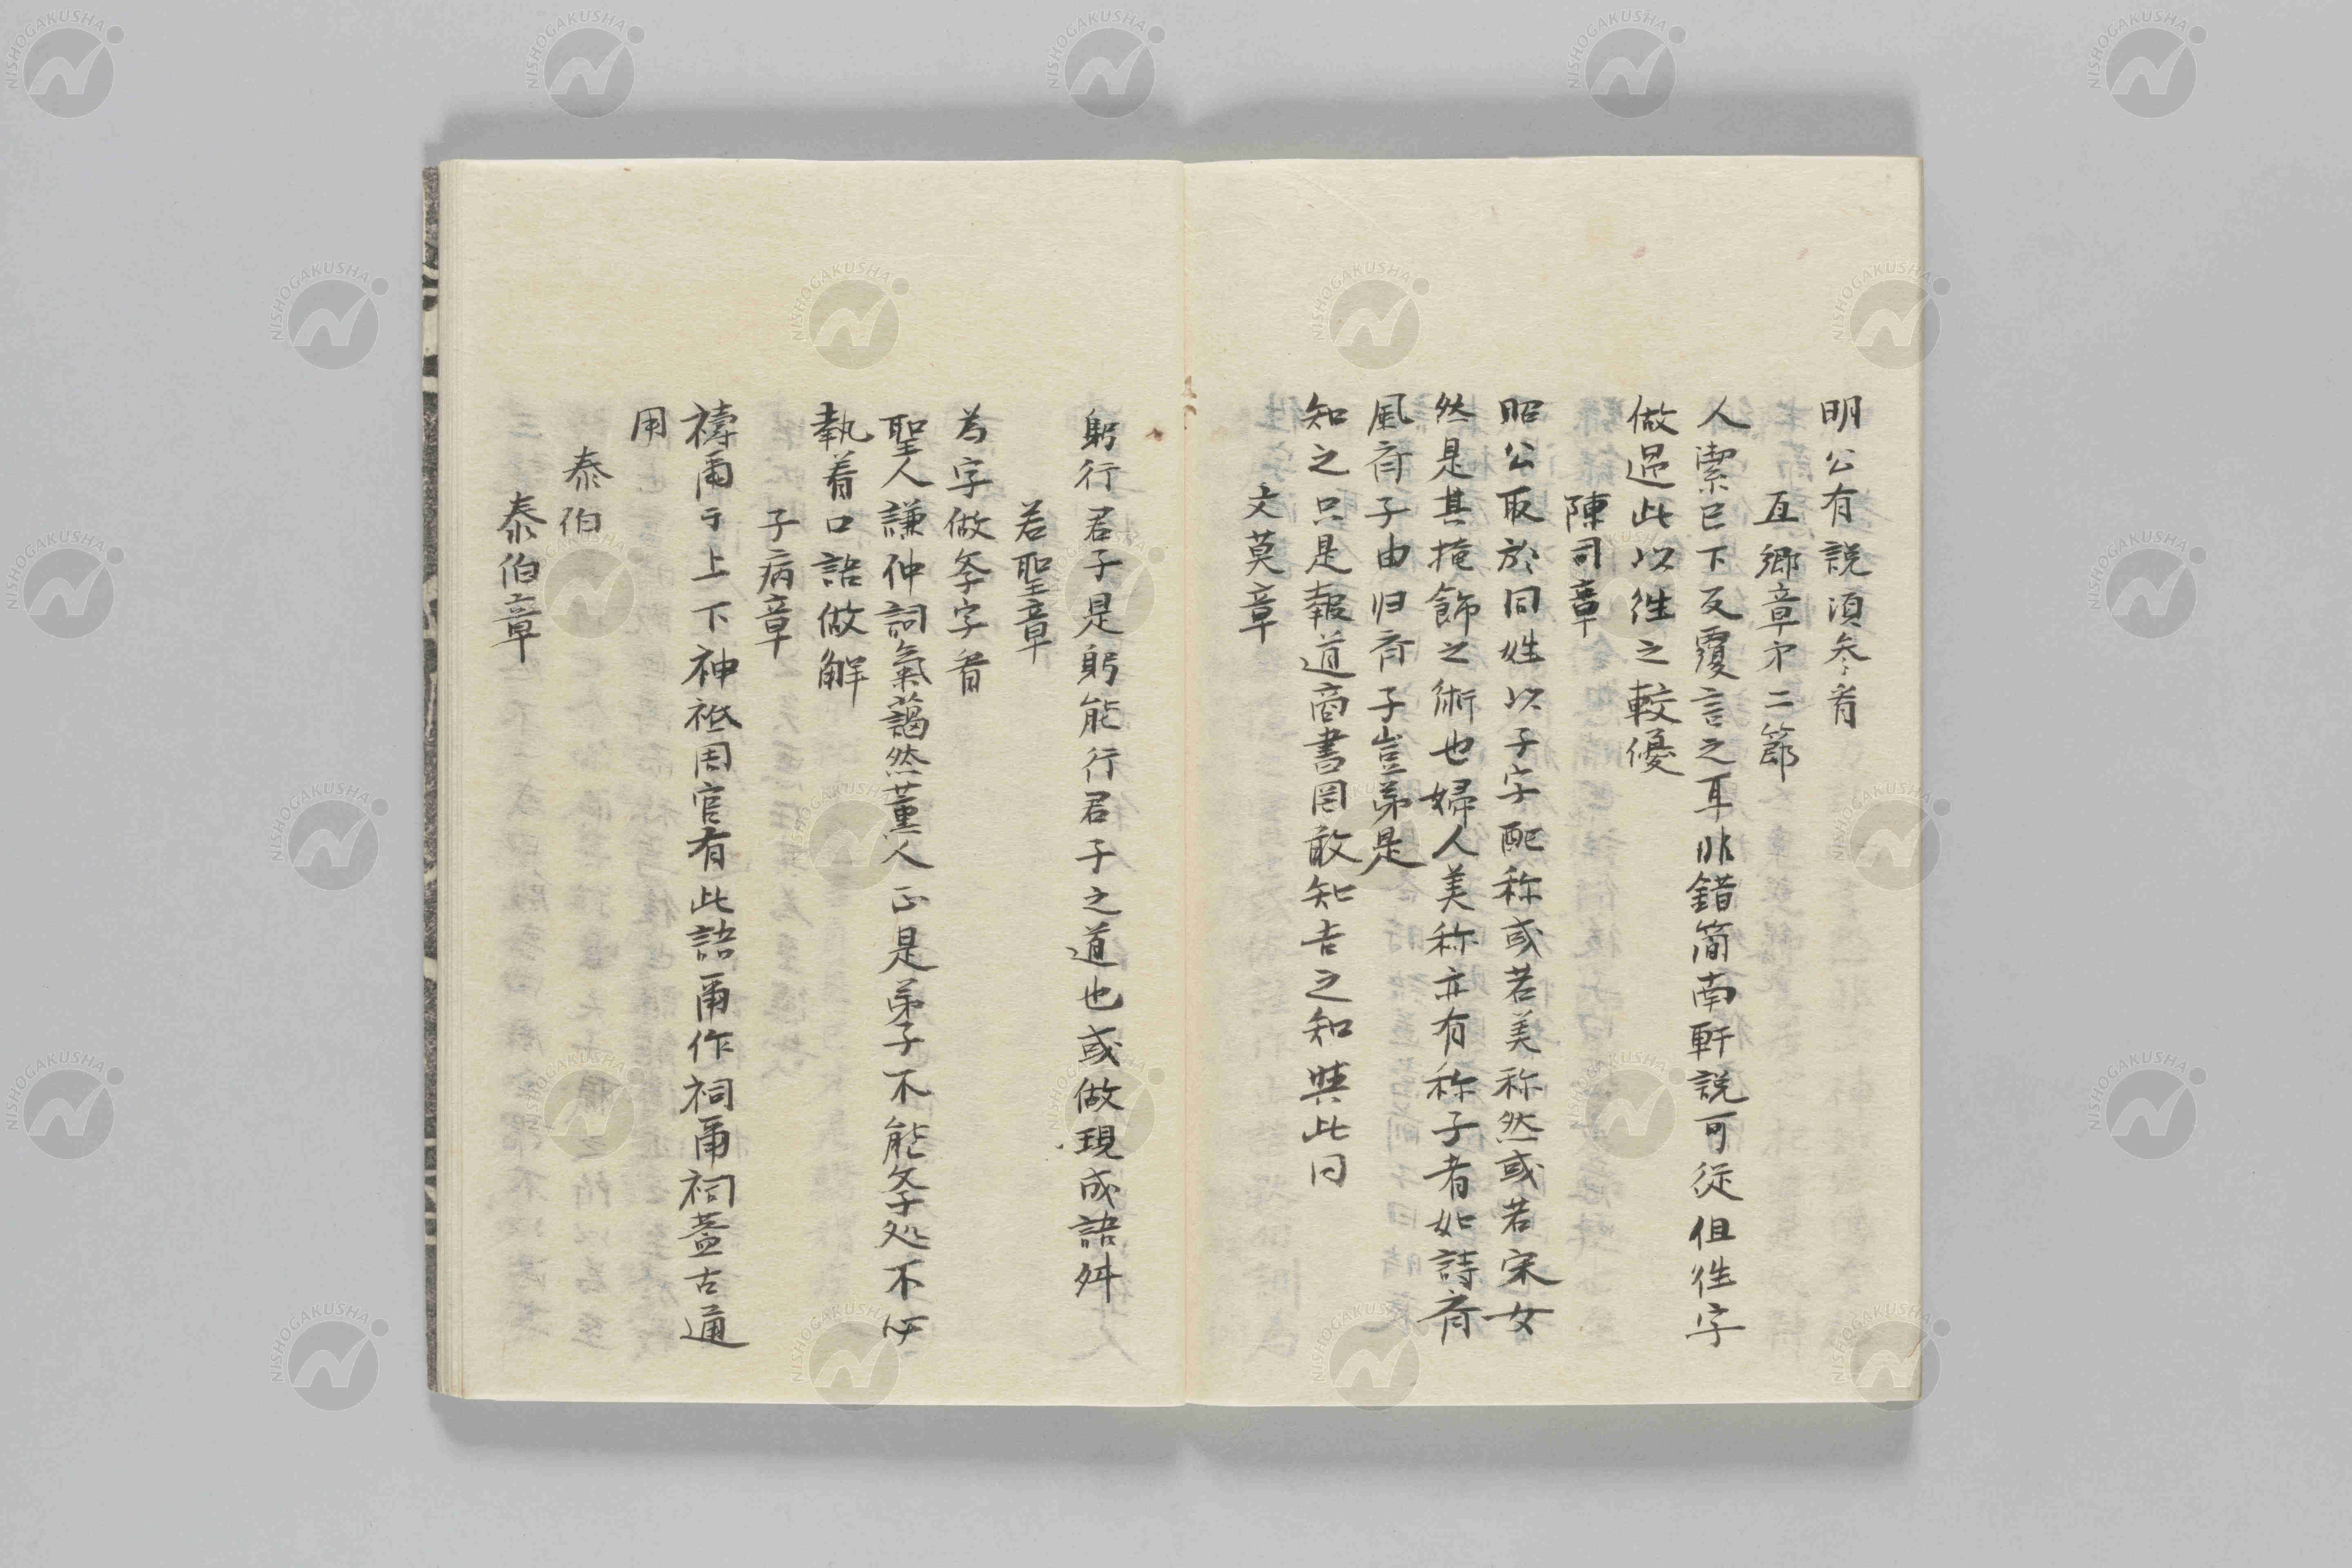 明公有説須參看
互郷章第二節
人潔已下反覆言之耳非錯简南軒説可從但徃字
做過此以徃之較優
陳司章
昭公取於同姓以子字配称或若美称然或若宋女
然是其掩飾之術也婦人美称亦有称子者如詩齊
風齊子由归齊子豈弟是
知之只是報道商書罔敢知吉之知與此同
文莫章
躬行君子是躬能行君子之道也或做現成語舛
若聖章
為字做学字看
聖人謙冲詞氣藹然薫人正是弟子不能学処不必
執着口語做解
子病章
禱爾于上下神祗周官有此語爾作祠爾祠蓋古通
用
泰伯
泰伯章
NISHOGAKUSHA